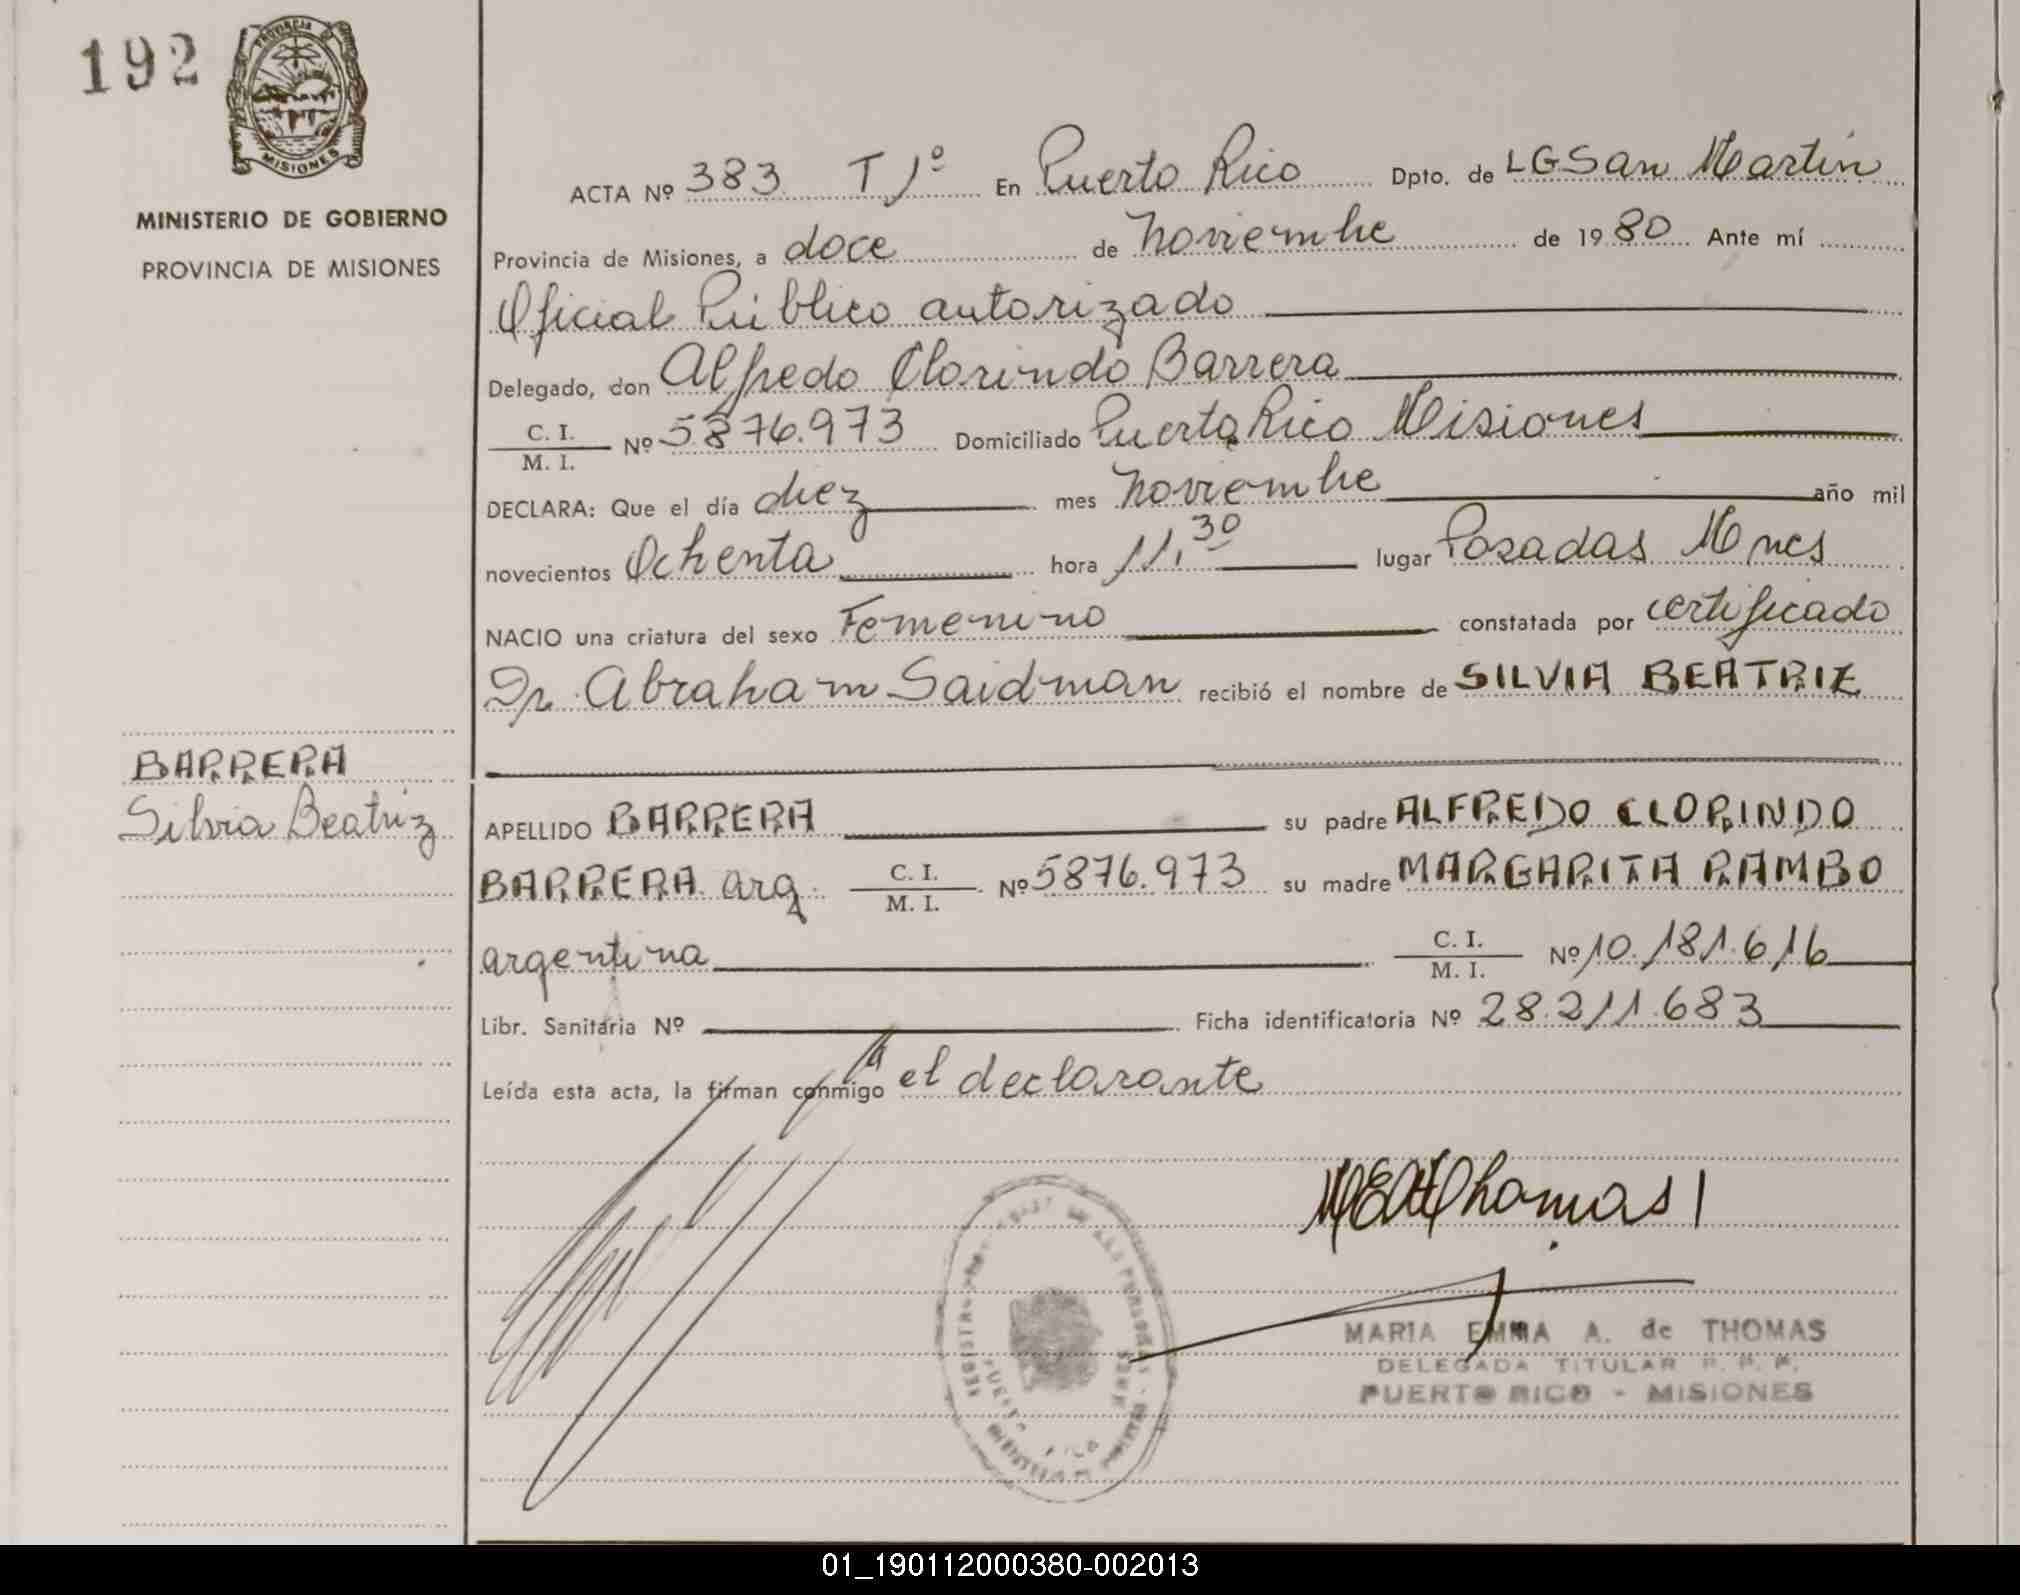 192
PROVINCIA
MISIONES
MINISTERIO DE GOBIERNO
PROVINCIA DE MISIONES
ACTA Nº 383 Tº 1º En Puerto Rico Dpto. de LGSan Martín
Provincia de Misiones, a doce de noviembre de 1980 Ante mí
Oficial Público autorizado
Delegado, don Alfredo Clorindo Barrera
C. I.
M. I.
Nº 5876.973 Domiciliado Puerto Rico Misiones
DECLARA: Que el día diez mes noviembre año mil
novecientos Ochenta hora 11,30 lugar Posadas Mnes
NACIO una criatura del sexo Femenino constatada por certificado
Dr. Abraham Saidman recibió el nombre de SILVIA BEATRIZ
BARRERA
Silvia Beatriz
APELLIDO BARRERA su padre ALFREDO CLORINDO
BARRERA arg. C. I.
M. I.
Nº 5876.973 su madre MARGARITA RAMBO
argentina C. I.
M. I.
Nº 10.181.616
Libr. Sanitaria Nº Ficha identificatoria Nº 28.211.683
Leída esta acta, la firman conmigo el declarante
MEAThomas
MARIA EMMA A. de THOMAS
DELEGADA TITULAR R. P. P.
PUERTO RICO - MISIONES
PUERTO RICO
01_190112000380-002013